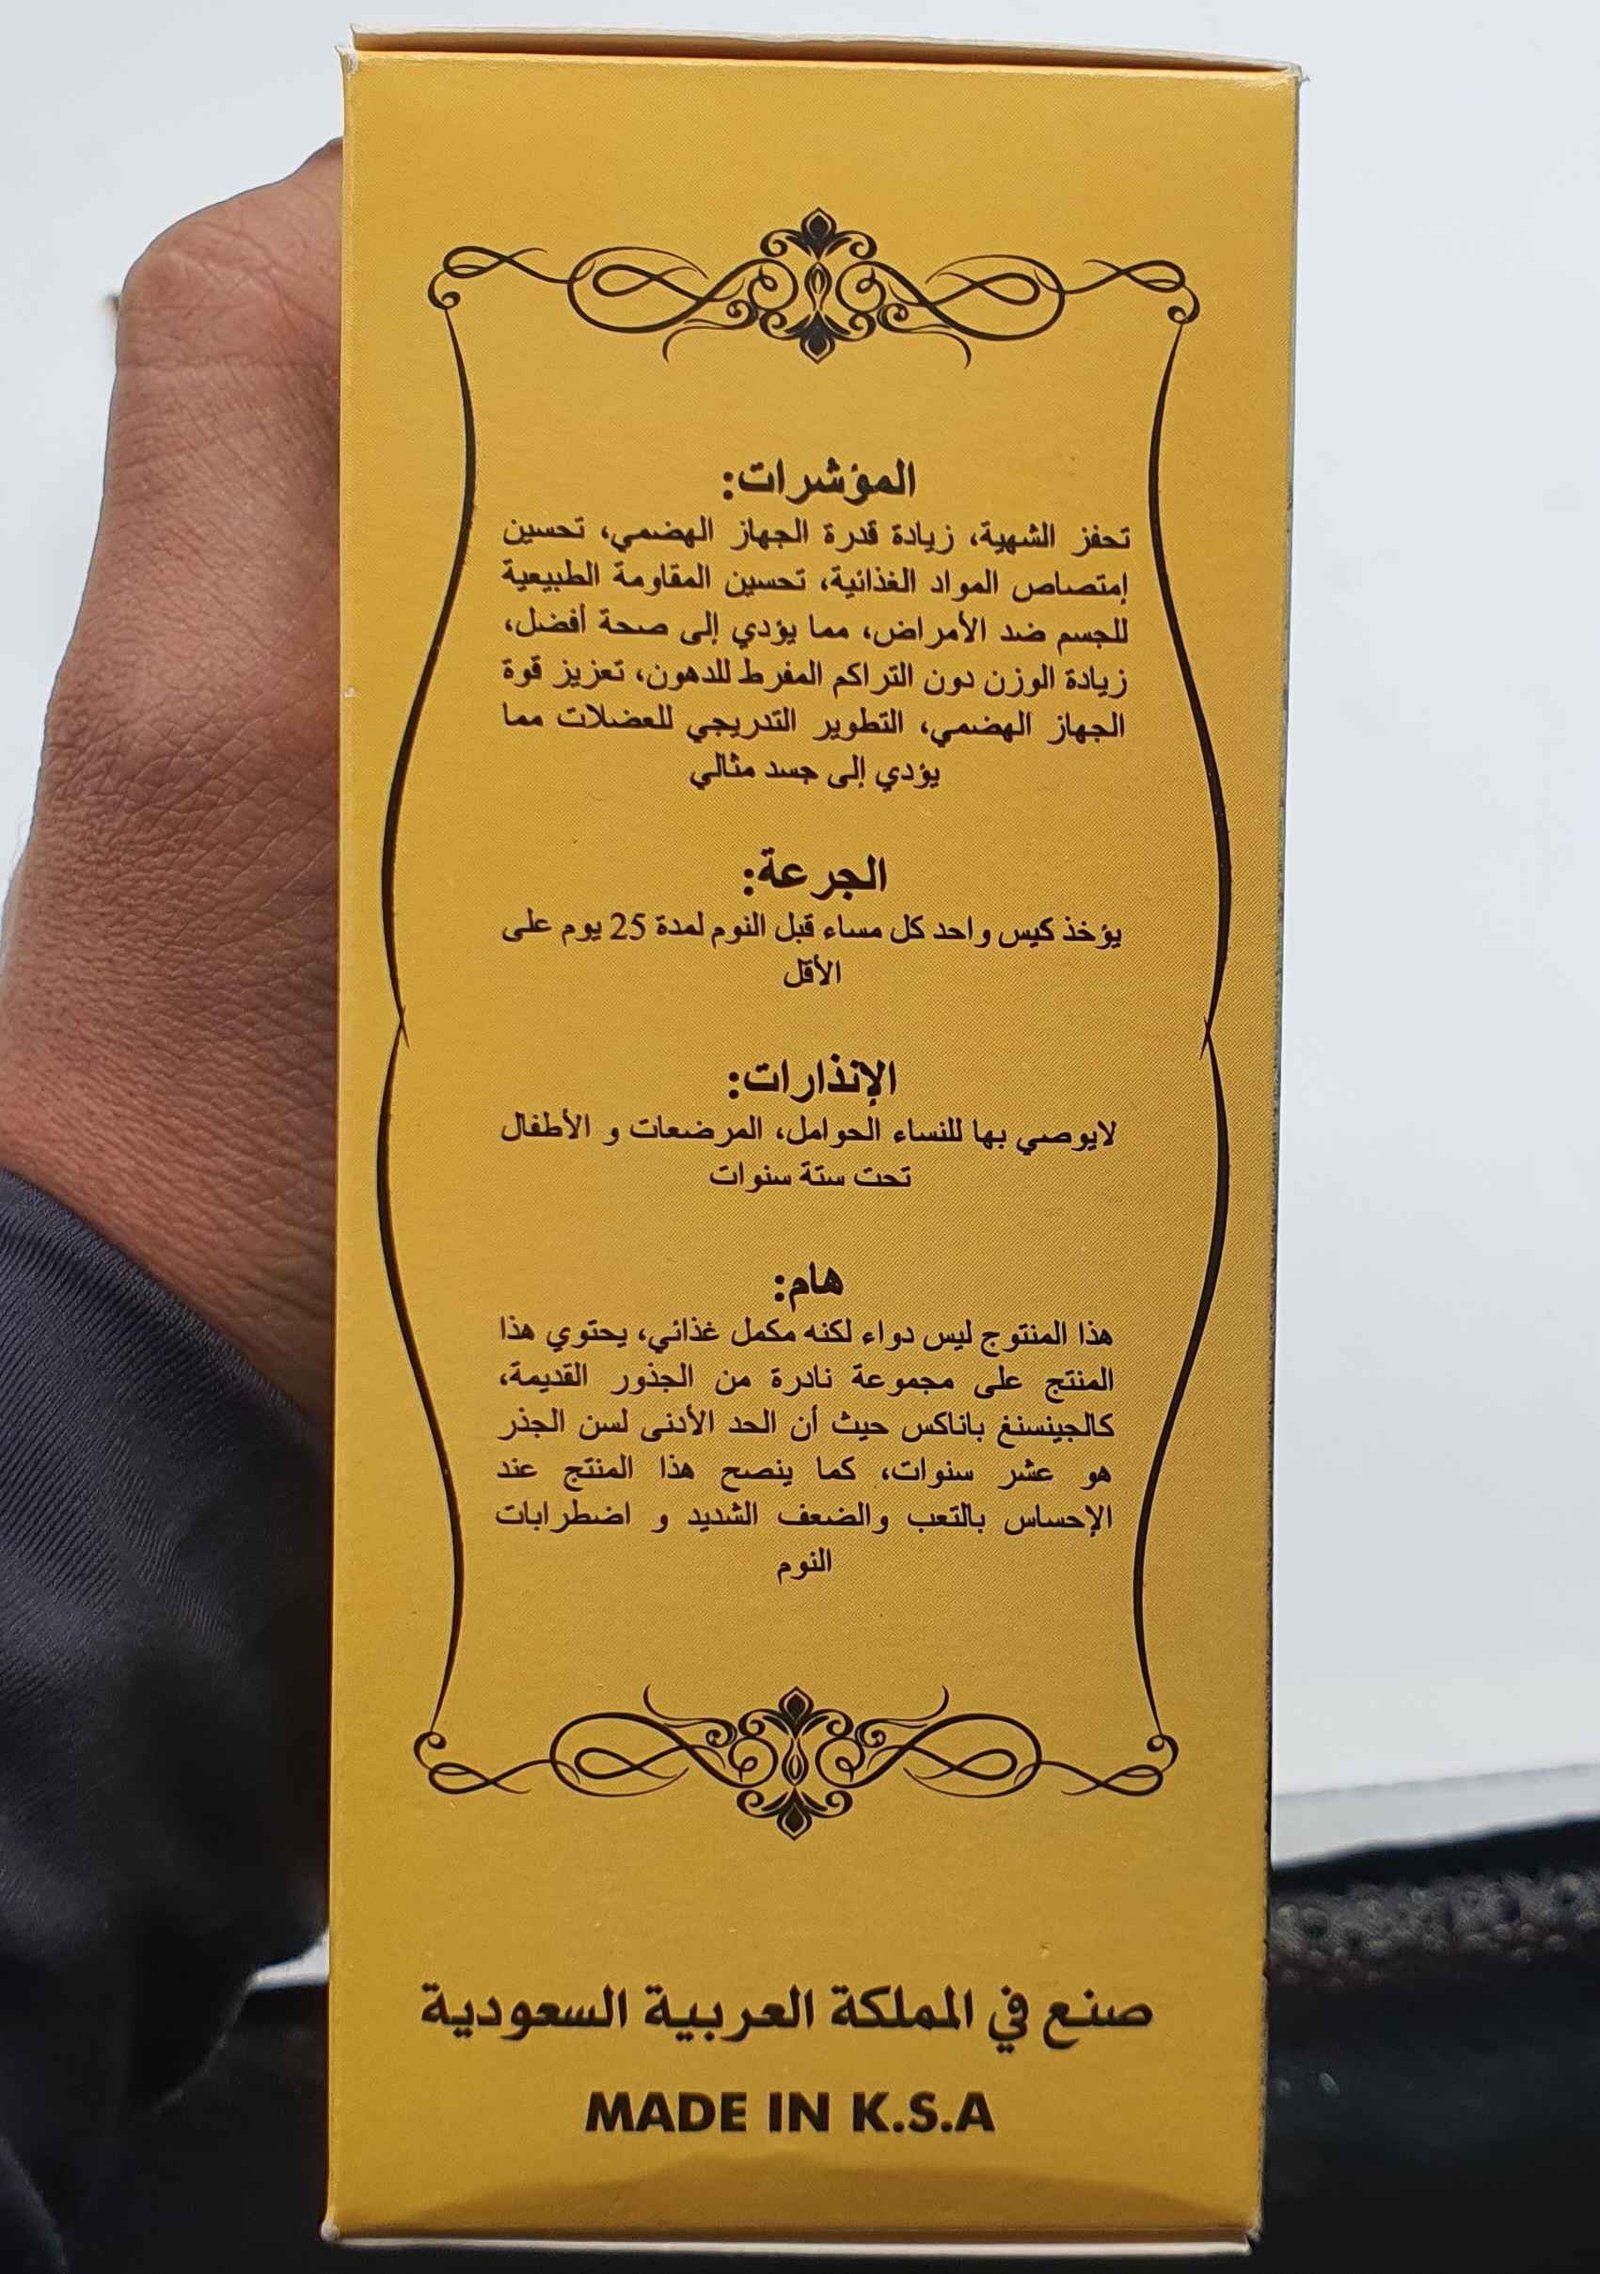 المؤشرات:
تحفز الشهية، زيادة قدرة الجهاز الهضمي، تحسين
إمتصاص المواد الغذائية، تحسين المقاومة الطبيعية
للجسم ضد الأمراض، مما يؤدي إلى صحة أفضل،
زيادة الوزن دون التراكم المفرط للدهون، تعزيز قوة
الجهاز الهضمي، التطوير التدريجي للعضلات مما
يؤدي إلى جسد مثالي
الجرعة:
يؤخذ كيس واحد كل مساء قبل النوم لمدة 25 يوم على
الأقل
الإنذارات:
لايوصي بها للنساء الحوامل، المرضعات و الأطفال
تحت ستة سنوات
هام:
هذا المنتوج ليس دواء لكنه مكمل غذائي، يحتوي هذا
المنتج على مجموعة نادرة من الجذور القديمة،
كالجينسنغ باناكس حيث أن الحد الأدنى لسن الجذر
هو عشر سنوات، كما ينصح هذا المنتج عند
الإحساس بالتعب والضعف الشديد و اضطرابات
النوم
صنع في المملكة العربية السعودية
MADE IN K.S.A